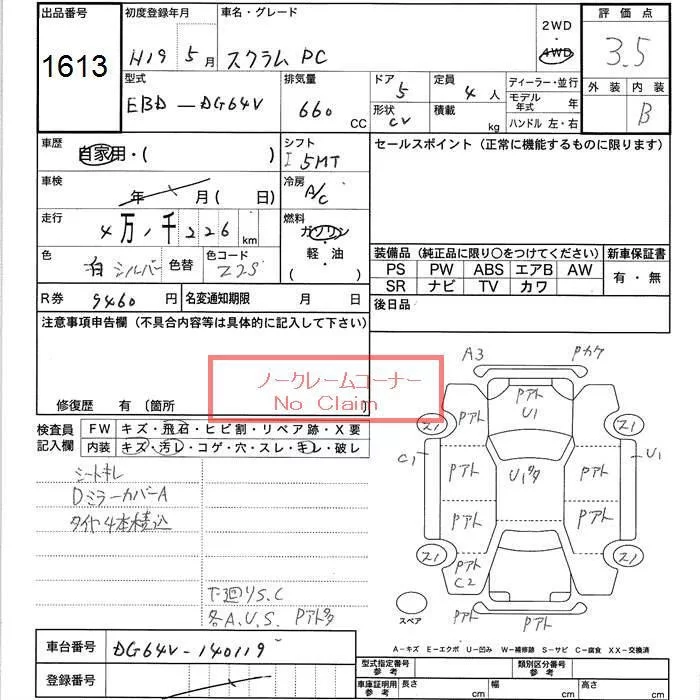 出品番号
1613
初度登録年月
H19 5月
車名・グレード
スクラム PC
2WD
4WD
評価点
3.5
外装 内装
B
型式
EBD-DG64V
排気量
660 CC
ドア
5
形状
CV
定員
4人
積載
kg
ディーラー・並行
モデル年式 年
ハンドル 左・右
車歴
自家用・( )
シフト
I 5MT
セールスポイント(正常に機能するものに限ります)
車検
年 月(日)
冷房
A/C
走行
4万1千226km
燃料
ガソリン
軽・油
( )
色
シルバー
色替
色コード
Z2S
装備品(純正品に限り○をつけてください)
PS PW ABS エアB AW
SR ナビ TV カワ
新車保証書
有・無
R券 9460円
名変通知期限 月 日
後日品
注意事項申告欄(不具合内容等は具体的に記入して下さい)
ノークレームコーナー
No Claim
修復歴 有〔箇所
検査員記入欄
FW キズ・飛石・ヒビ割・リペア跡・X要
内装 キズ・汚レ・コゲ・穴・スレ・キレ・破レ
シートキレ
DミラーカバーA
タイヤ4本積込
下廻りS.C
各A.U.S. Pアトタ
A3 Pカケ
Pアト
U1
Pアト Pアト
ス1 ス1
C1 U1
Pアト U1タ Pアト
Pアト Pアト
ス1 ス1
Pアト
C2
スペア
Pアト Pアト
A-キズ E-エクボ U-凹み W-補修跡 S-サビ C-腐食 XX-交換済
車台番号 DG64V-140119
登録番号
型式指定番号 参考
類別区分番号 参考
車庫証明用 参考
長さ cm
幅 cm
高さ cm